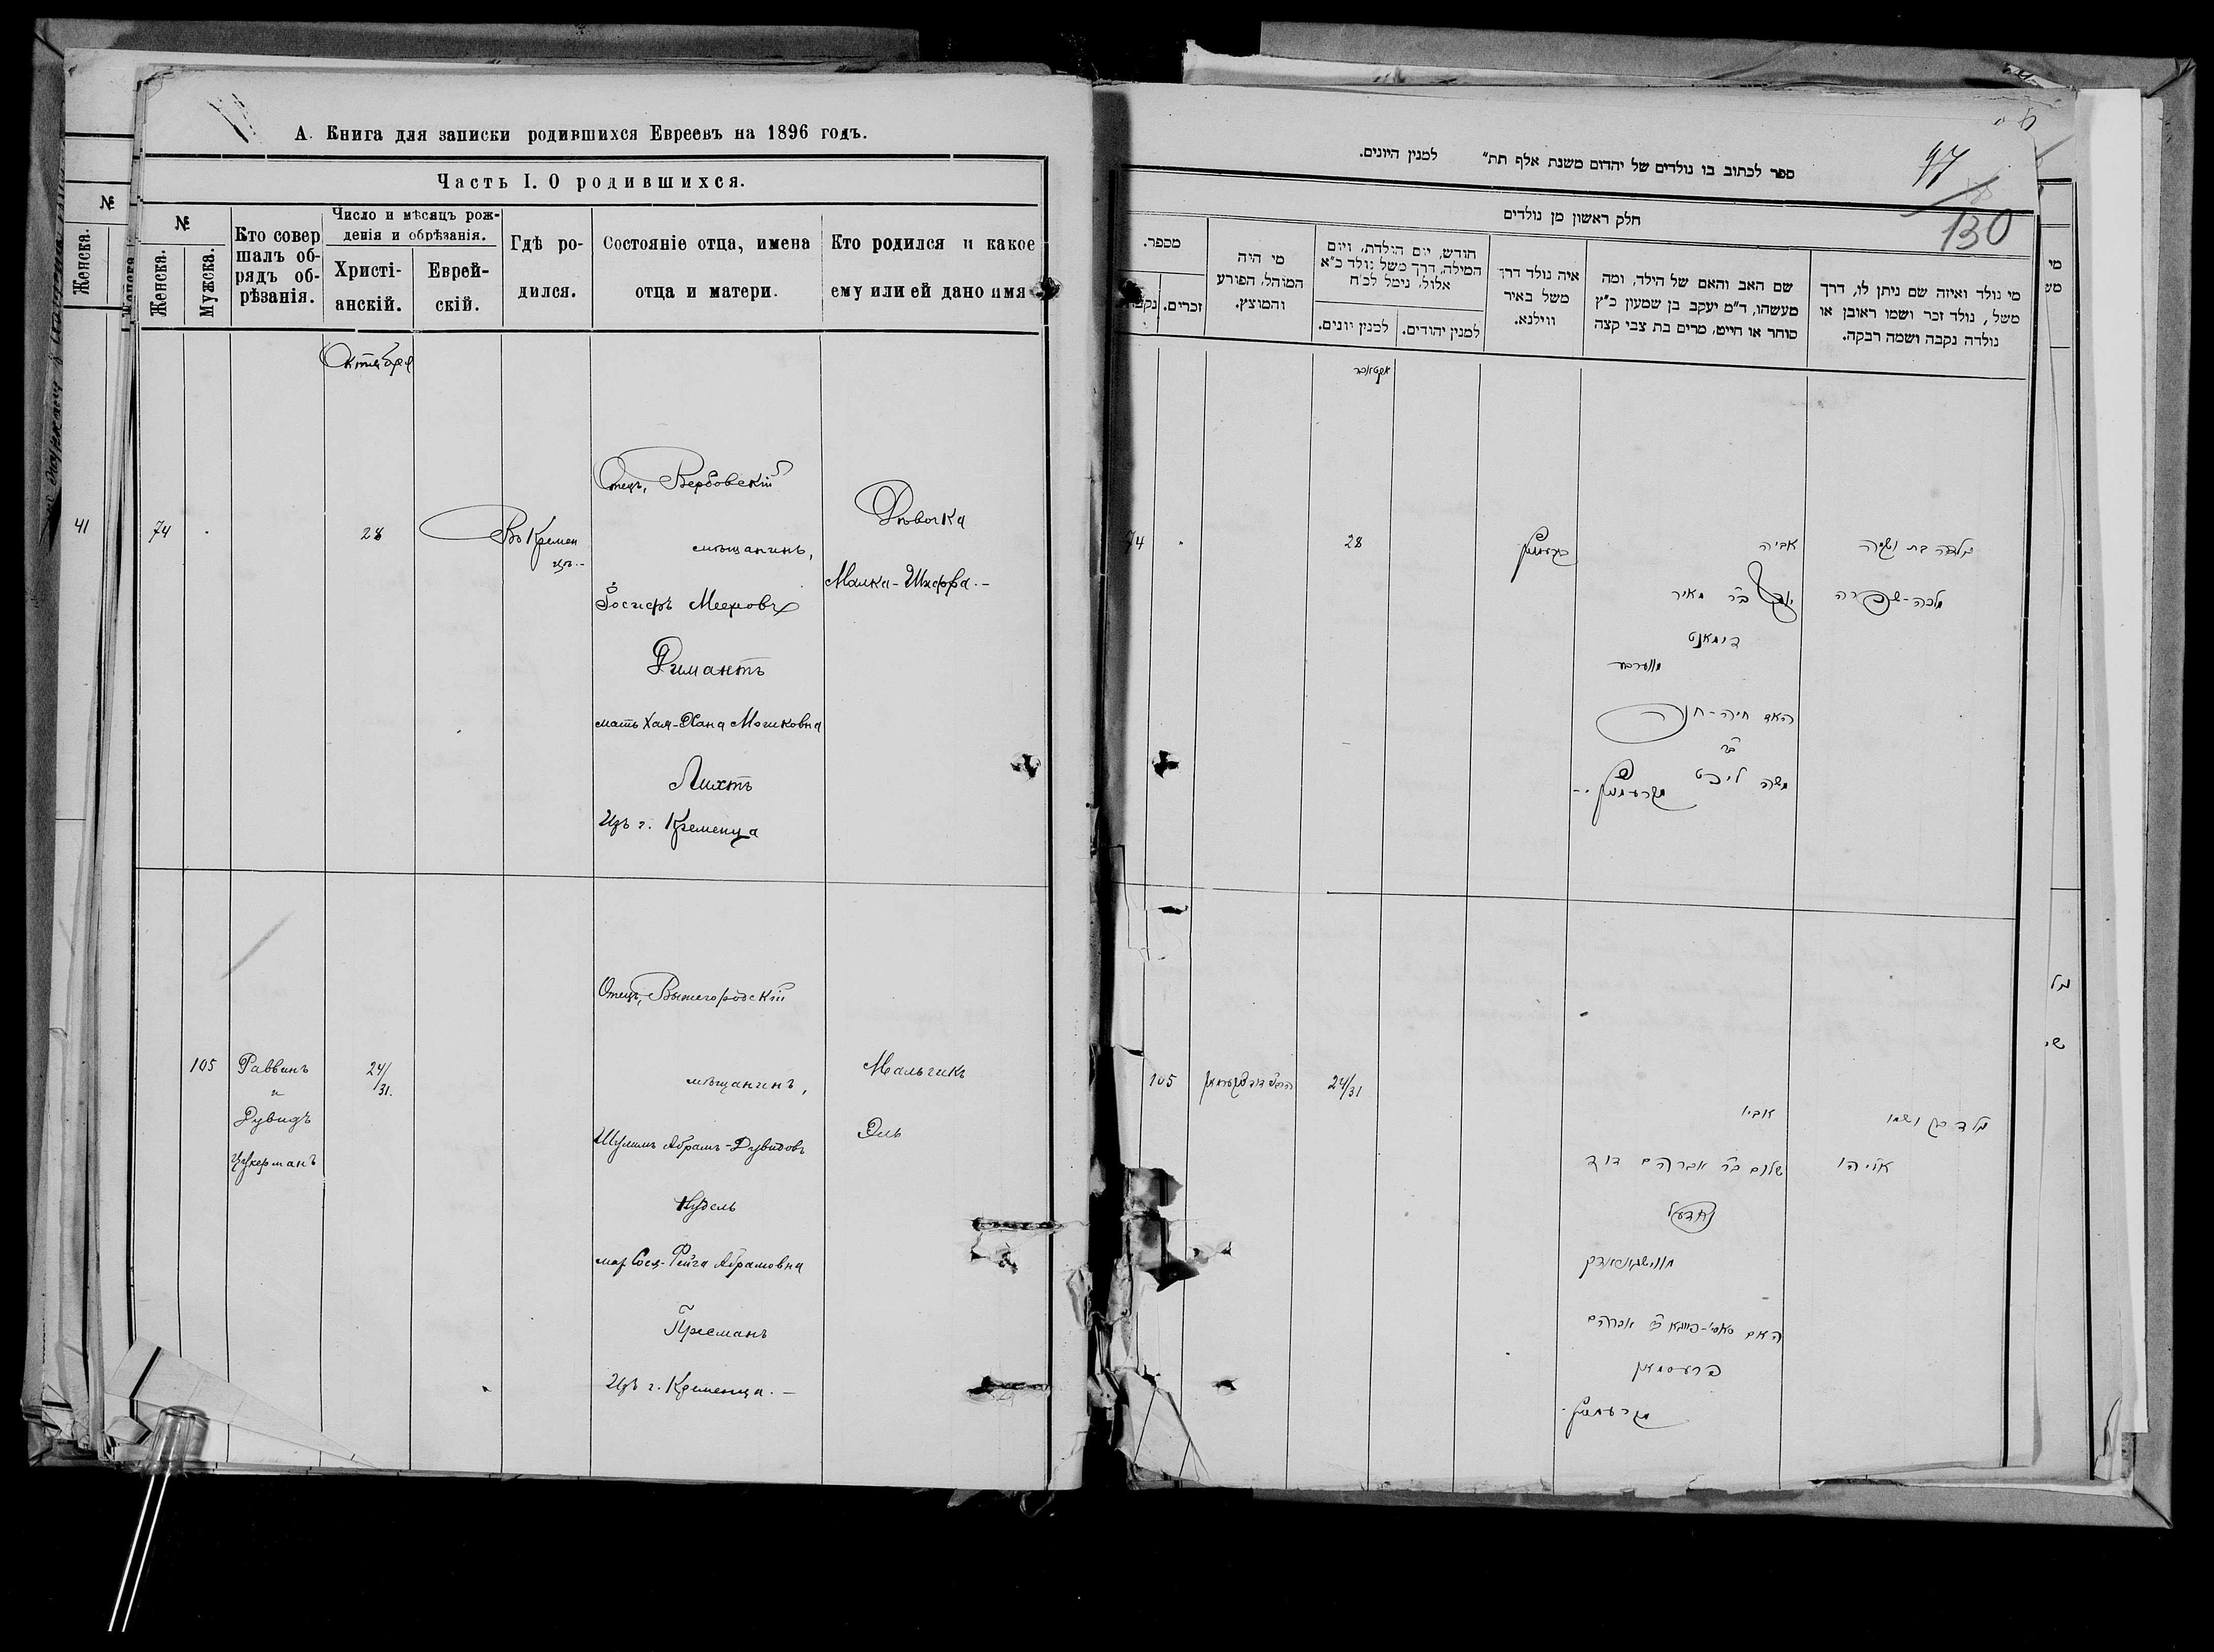 А. Книга для записки родившихся Евреевъ на 1896 годъ.
Часть I. О родившихся.
№
Женска.
Мужска.
Кто совер
шалъ об-
рядъ об-
рѣзанія.
Число и мѣсяцъ рож-
денія и обрѣзанія.
Христі-
анскій.
Еврей-
скій.
Гдѣ ро-
дился.
Состояніе отца, имена
отца и матери.
Кто родился и какое
ему или ей дано имя
Октября
74
28
Въ Кремен
цѣ.-
Отецъ, Вербовскій
мѣщанинъ,
Іосифъ Мееровъ
Димантъ
мать Хая-Хана Мошковна
Лихтъ
Изъ г. Кременца
Дѣвочка
Малка-Шифра.-
105
Раввинъ
и
Дувидъ
Цукерманъ
24/
31.
Отецъ, Вышегородскій
мѣщанинъ,
Шулимъ Абрамъ-Дувидовъ
Нудель
мат Сося-Фейга Абрамовна
Пресманъ
Изъ г. Кременца.-
Мальчикъ
Эль
№
Женска.
41
ספר לכתוב בו נולדים של יהדום משנת אלף תת״ למנין היונים.
47
130
חלק ראשון מן נולדים
מספר.
נקבות
זכרים.
מי היה
המוהל, הפורע
והמוצץ.
חודש, יום הולדת, ויום
המילה, דרך משל נולד כ״א
אלול, נימל לכ״ח
למנין יונים.
למנין יהודים.
איה נולד דרך
משל באיר
ווילנא.
שם האב והאם של הילד, ומה
מעשהו, ד״מ יעקב בן שמעון כ״ץ
סוחר או חייט, מרים בת צבי קצה
מי נולד ואיזה שם ניתן לו, דרך
משל, נולד זכר ושמו ראובן או
נולדה נקבה ושמה רבקה.
אקטאבר
74
28
אביה
יוסף ב״ר מאיר
דימאנט
האם חיה-חנה
ב״ר
משה ליכט
נולדה בת ושמה
מלכה-שפרה
105
24/31
אביו
שלום ב״ר אברהם דוד
נאדעל
האם סאסי-פייגא ב״ר אברהם
פרעסמאן
נולד בן ושמו
אליהו